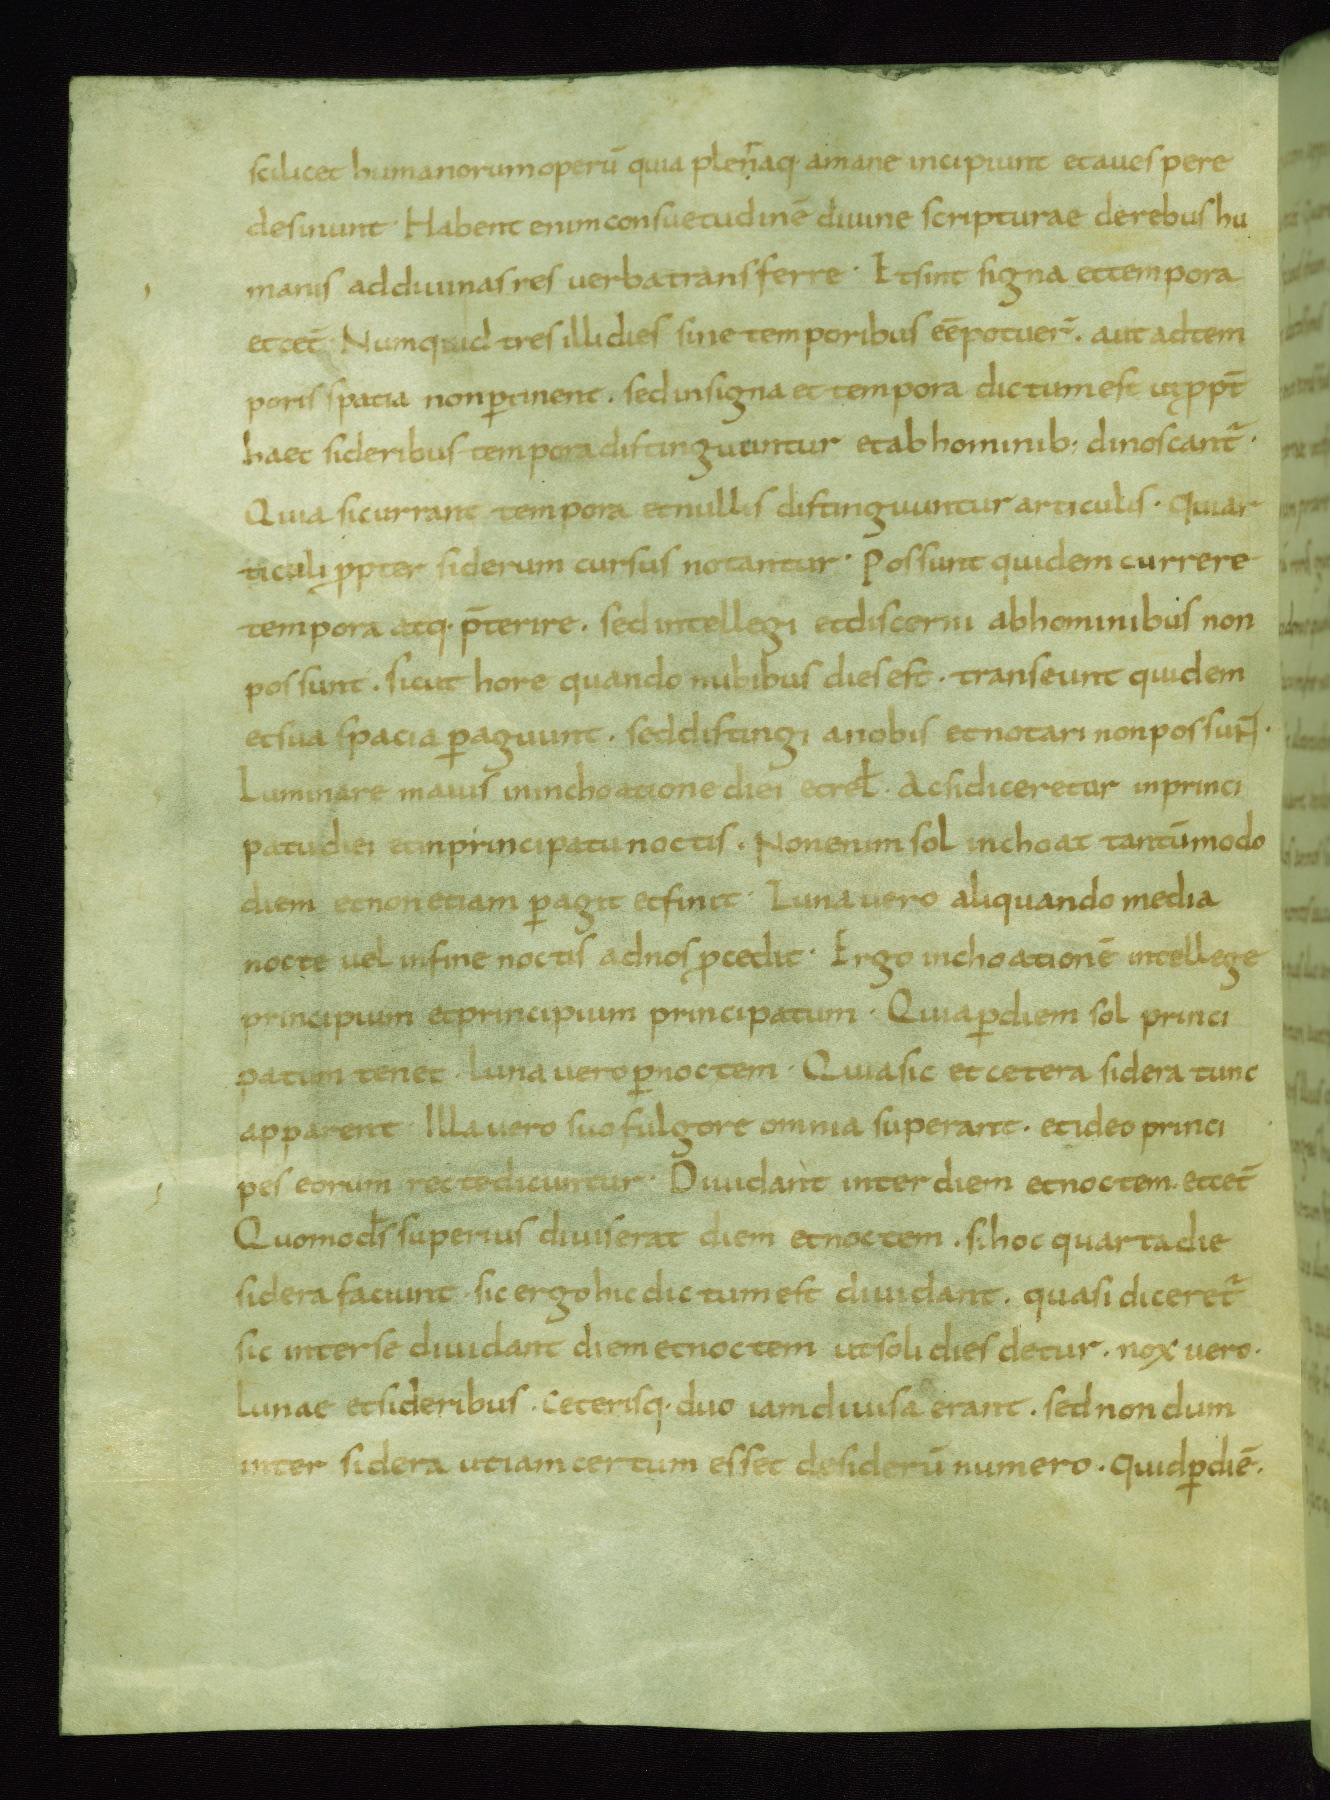 scilicet humanorum operū quia pleñaq· amane incipiunt et auespere
desinunt· Habent enim consuetudinē diuine scripturae derebus hu
manis ad diuinas res uerba transferre· Et sint signa et tempora
et cet̄· Numquid tres illi dies sine temporibus eē potuer̄· aut ad tem
poris spatia non ꝑtinent· sed in signa et tempora dictum est ut ꝓpt̄
haec sideribus tempora distinguuntur et ab hominib; dinoscant̄·
Quia si currant tempora et nullis distinguuntur articulis· Qui ar
ticuli ꝓpter siderum cursus notantur· Possunt quidem currere
tempora atq· p̄terire· sed intellegi et discerni ab hominibus non
possunt· sicut hore quando nubibus dies est· transeunt quidem
et sua spacia ꝑagunt· sed distingi a nobis et notari non possunt̄·
Luminare maius in inchoatione diei et rel̄· Ac si diceretur in princi
patu diei et in principatu noctis· Non enim sol inchoat tantūmodo
diem et non etiam ꝑagit et finit· Luna uero aliquando media
nocte uel in fine noctis ad nos ꝓcedit· Ergo inchoationē intellege
principium et principium principatum· Quia ꝑ diem sol princi
patum tenet· luna uero ꝑ noctem· Quia sic et cetera sidera tunc
apparent· Illa uero suo fulgore omnia superant· et ideo princi
pes eorum recte dicuntur· Diuidant inter diem et noctem· et cet̄
Quomodo d̄s superius diuiserat diem et noctem· si hoc quarta die
sidera faciunt· sic ergo hic dictum est diuidant· quasi diceret̄
sic inter se diuidant diem et noctem ut soli dies detur· nox uero·
lunae et sideribus· ceterisq· duo iam diuisa erant· sed non dum
inter sidera ut iam certum esset de siderū numero· quid ꝑ diē·